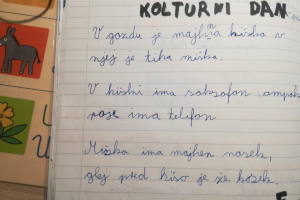 KOLTURNI DAN
V gozdu je majhna hiška v
njej je tiha miška.
V hiški ima saksofon ampak
raje ima telefon
Miška ima majhen nosek,
glej pred hišo je že kožek.